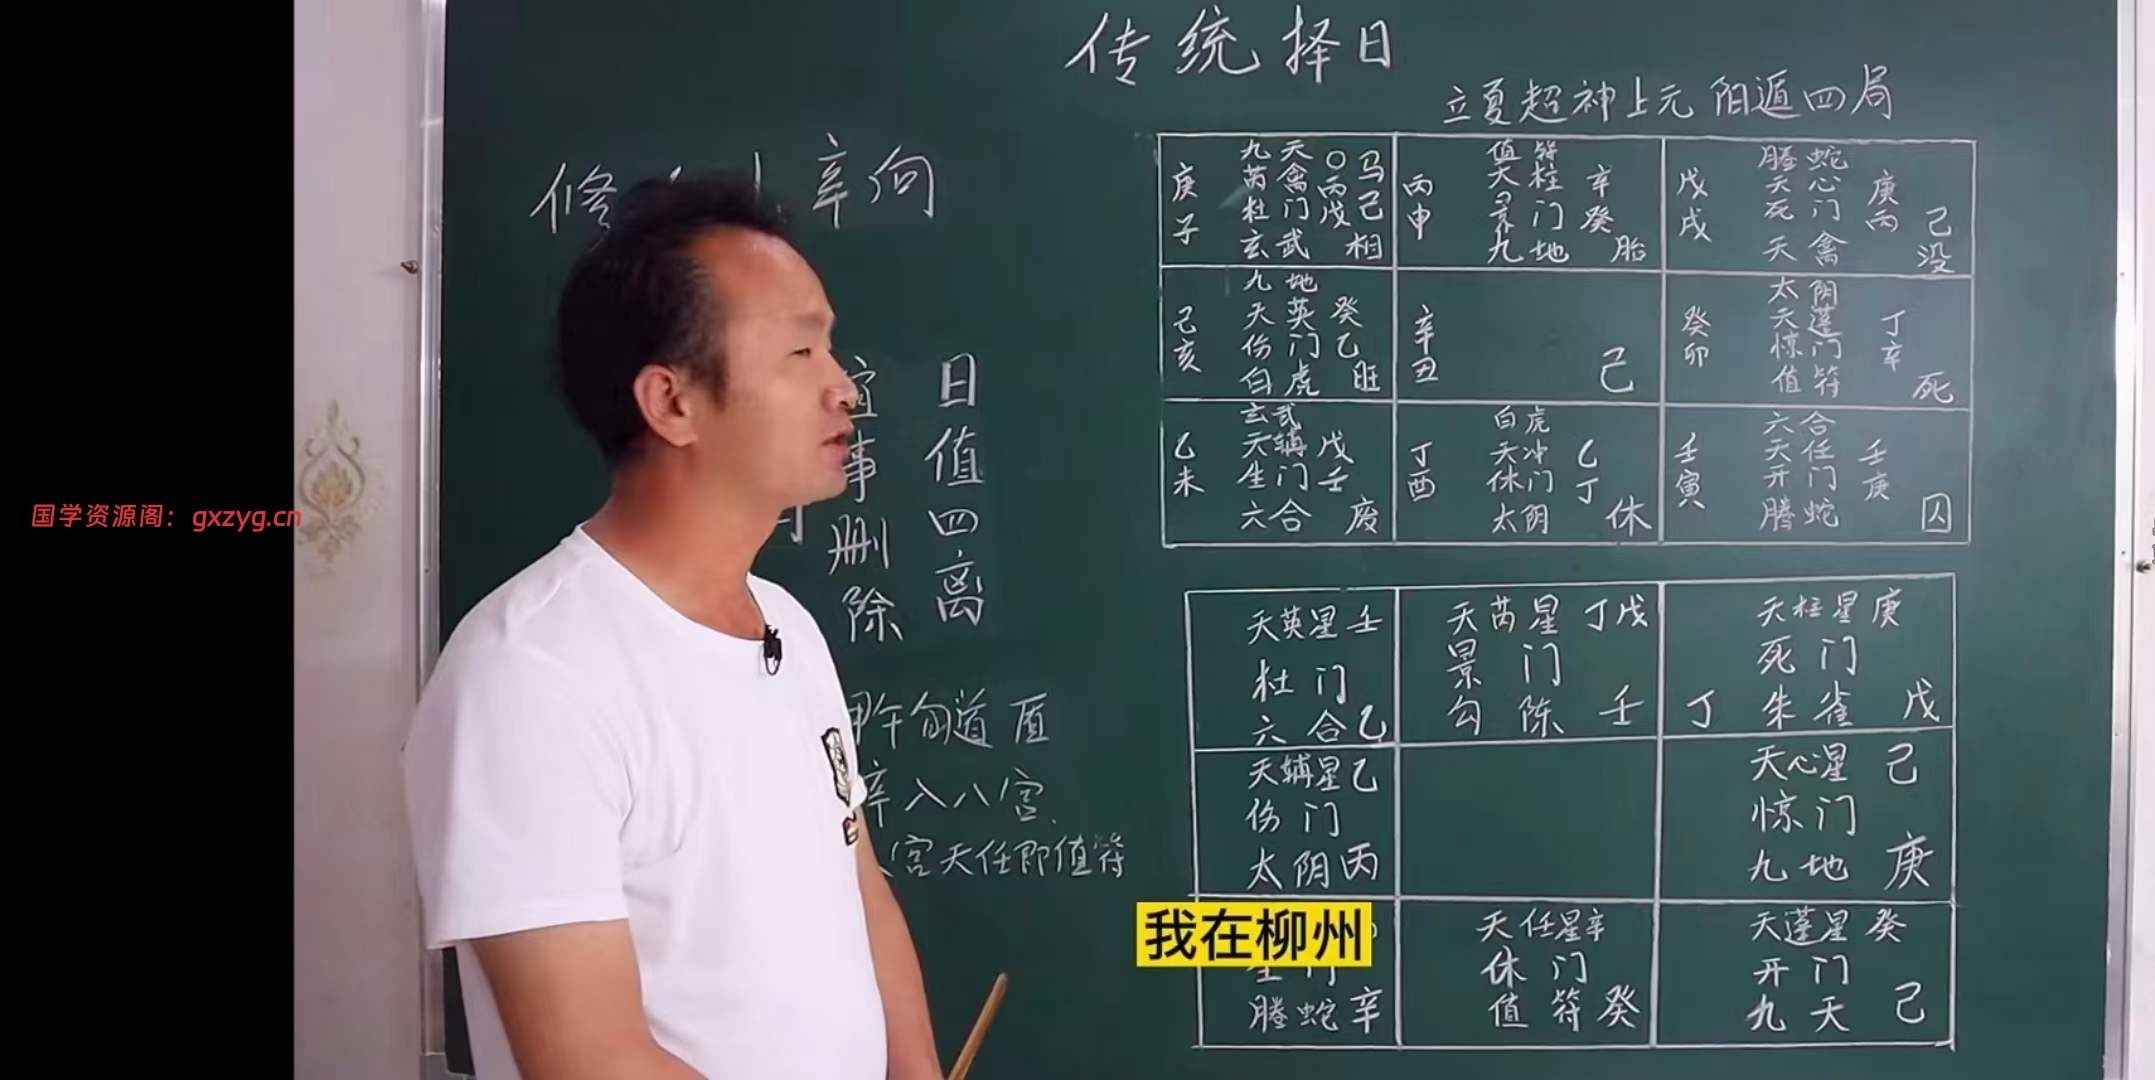 传统择日
立夏超神上元 阳遁四局
修 辛向
日值四离
宜事删除
甲午旬遁
辛入八宫
宫天任即值符
国学资源阁：gxzyg.cn
庚子 九天 〇 马
芮禽 丙 己
杜门 戊
玄武 相
丙申 值符
天柱 辛
景门 癸
九地 胎
戊戌 腾蛇
天心 庚
死门 丙 己
天禽 没
己亥 九地
天英 癸
伤门 乙
白虎 旺
辛丑 己
癸卯 太阴
天蓬 丁
惊门 辛
值符 死
乙未 玄武
天辅 戊
生门 壬
六合 废
丁酉 白虎
天冲 乙
休门 丁
太阴 休
壬寅 六合
天任 壬
开门 庚
腾蛇 囚
天英星 壬
杜门
六合 乙
天芮星 丁戊
景门
勾陈 壬
天柱星 庚
死门
丁 朱雀 戊
天辅星 乙
伤门
太阴 丙
天心星 己
惊门
九地 庚
我在柳州
腾蛇 辛
天任星 辛
休门
值符 癸
天蓬星 癸
开门
九天 己